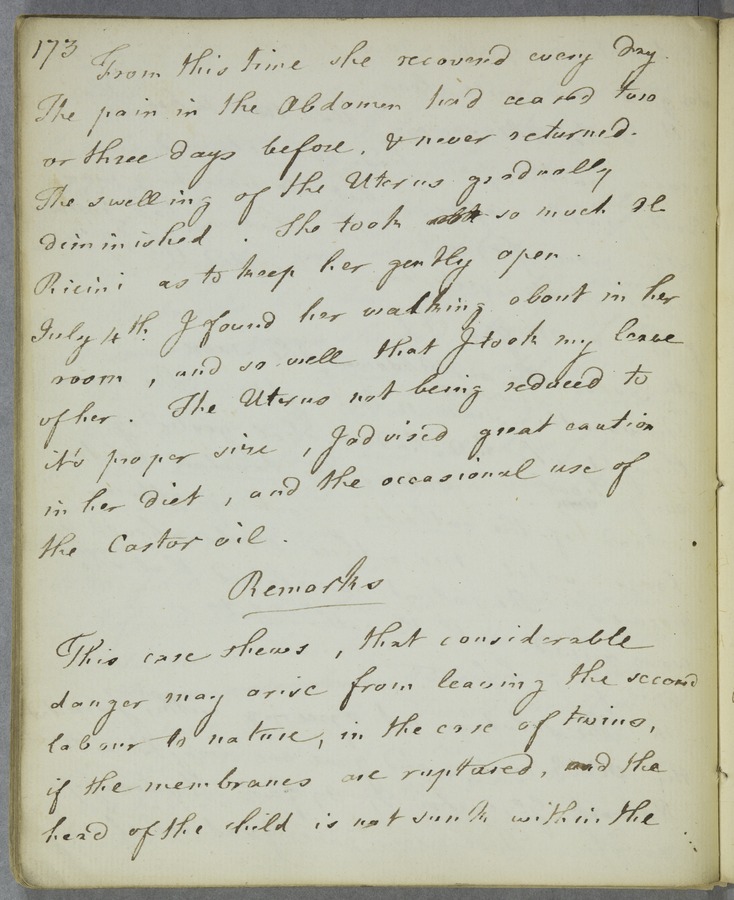 173
From this time she recovered every day.
The pain in the Abdomen had ceased two
or three days before, & never returned.
The swelling of the Uterus gradually
diminished. She took so much Ol.
Ricini as to keep her gently open.
July 4th. I found her walking about in her
room, and so well that I took my leave
of her. The Uterus not being reduced to
it's proper size, I advised great caution
in her diet, and the occasional use of
the Castor oil.
Remarks
This case shews, that considerable
danger may arise from leaving the second
labour to nature, in the case of twins,
if the membranes are ruptured, and the
head of the child is not sunk within the